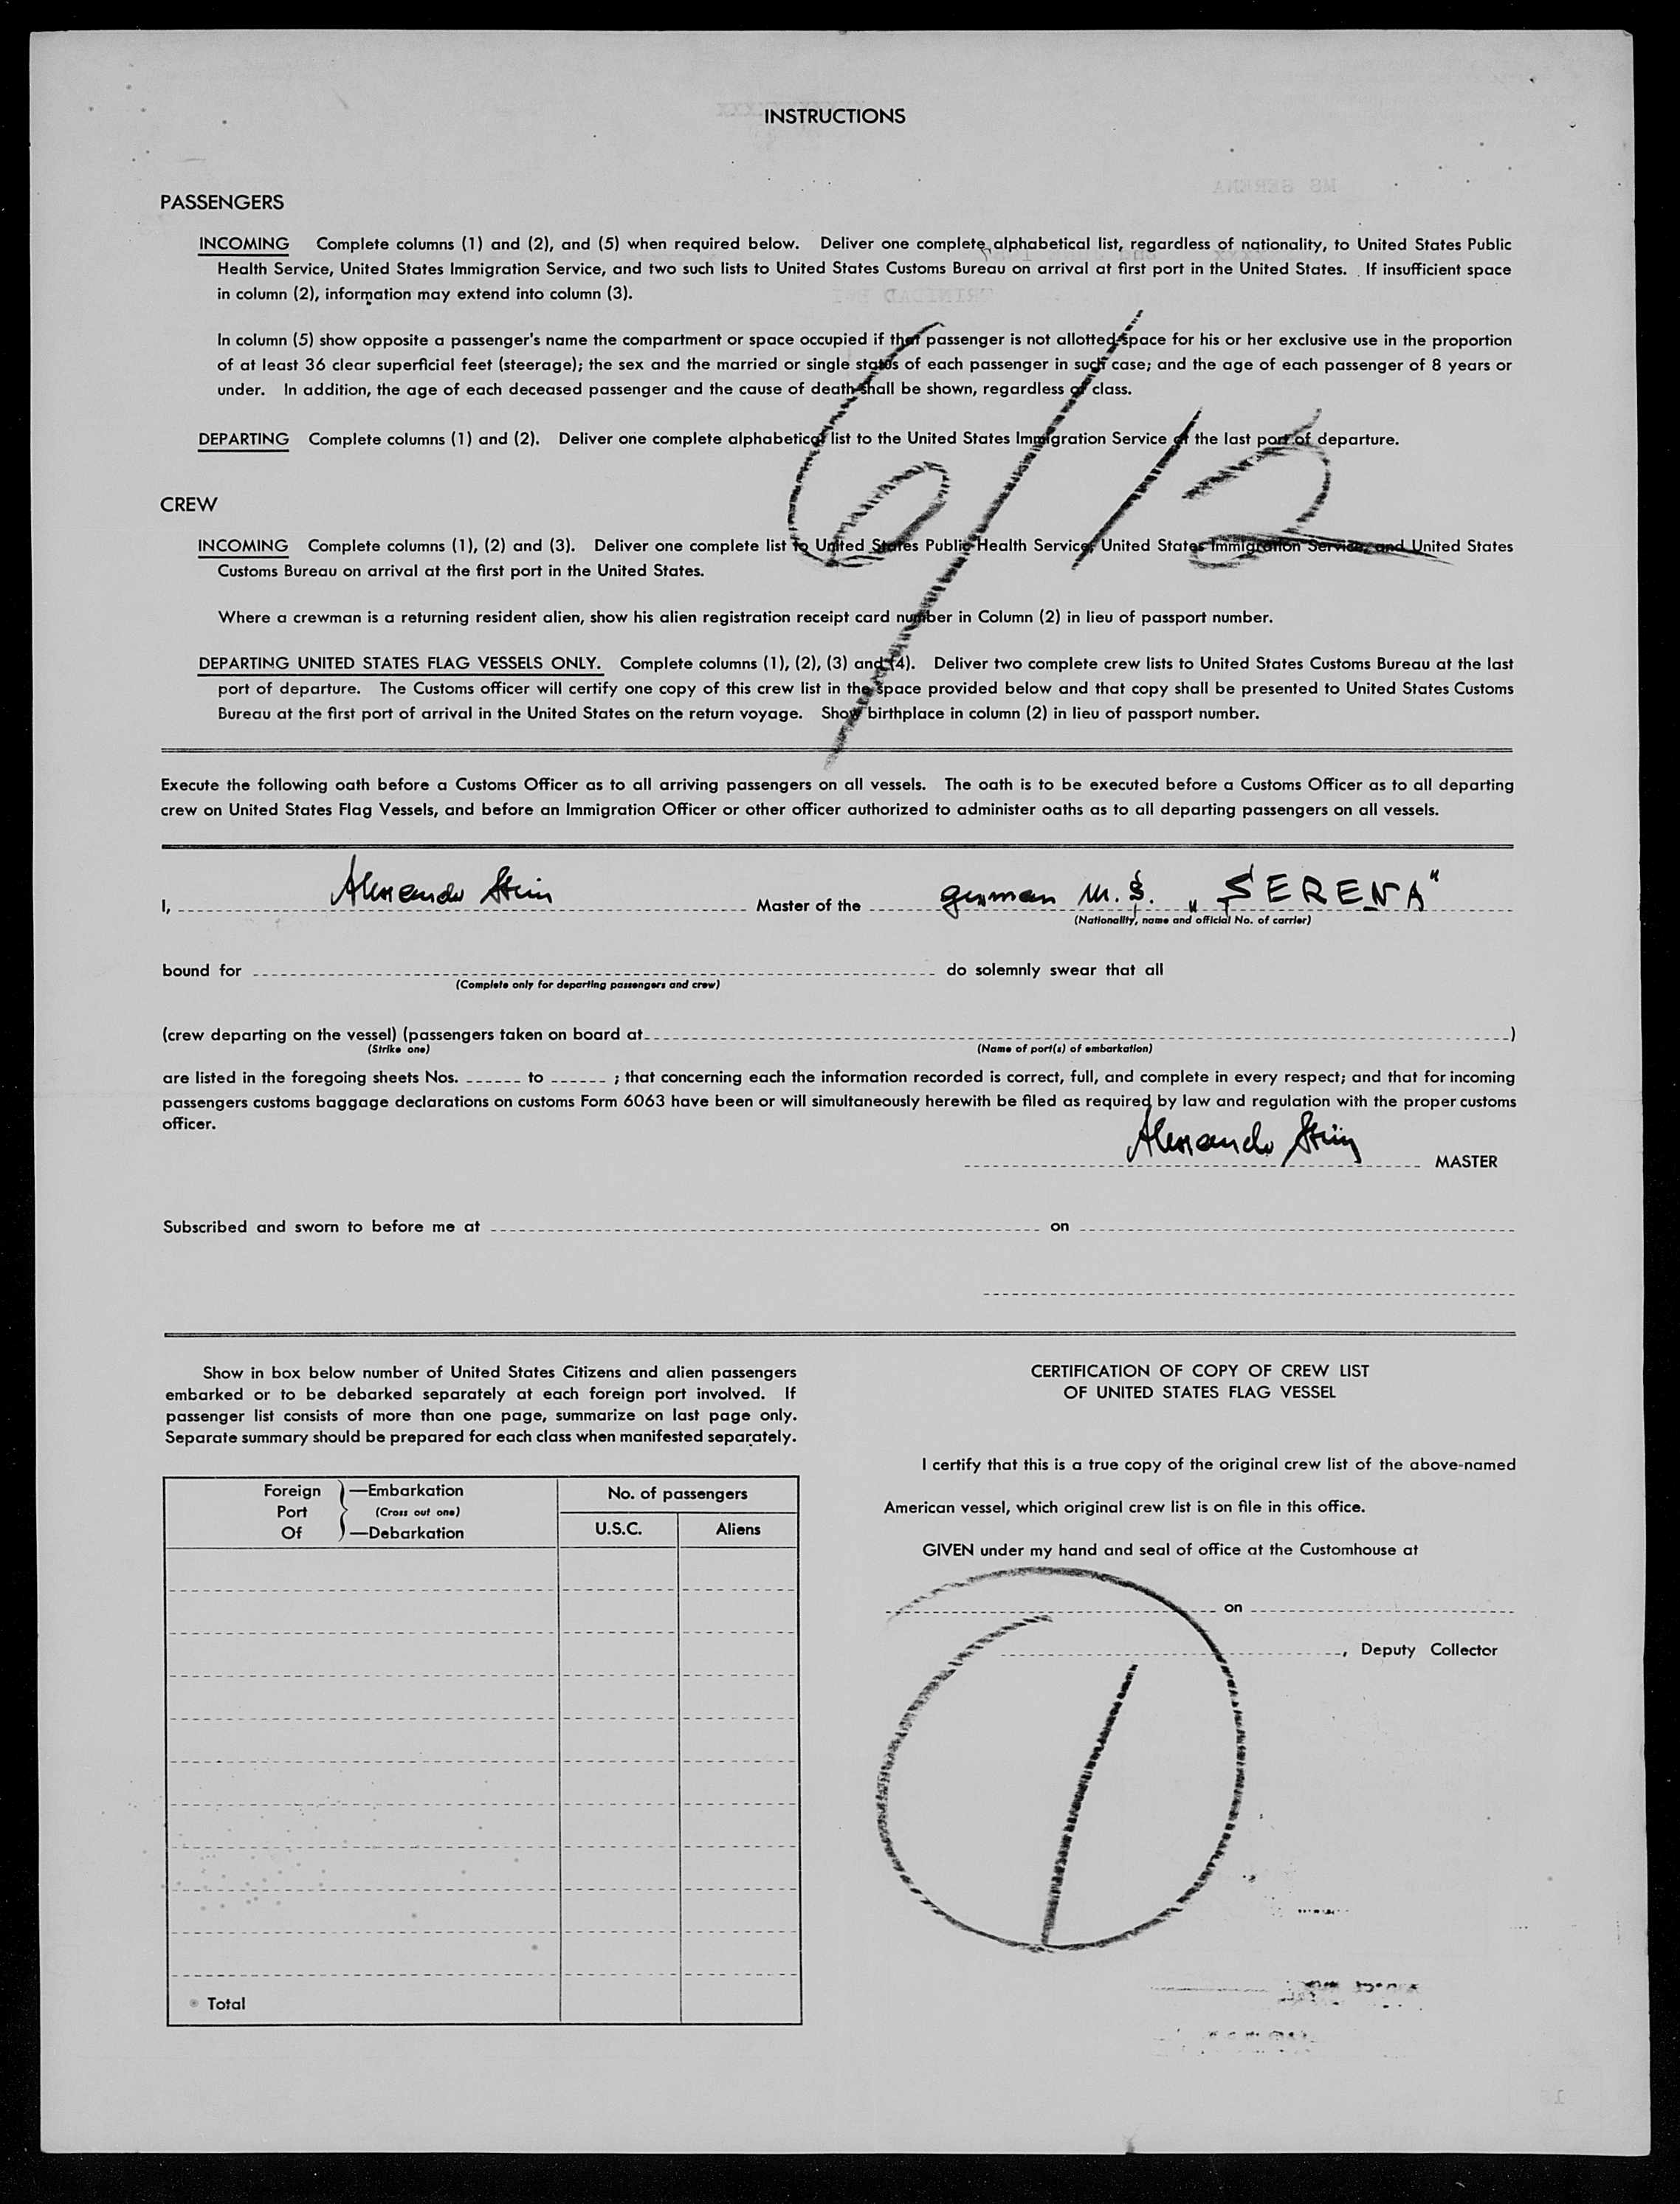 INSTRUCTIONS
MS SERENA
PASSENGERS
INCOMING Complete columns (1) and (2), and (5) when required below. Deliver one complete alphabetical list, regardless of nationality, to United States Public
Health Service, United States Immigration Service, and two such lists to United States Customs Bureau on arrival at first port in the United States. If insufficient space
in column (2), information may extend into column (3).
TRINIDAD BWI
In column (5) show opposite a passenger's name the compartment or space occupied if that passenger is not allotted space for his or her exclusive use in the proportion
of at least 36 clear superficial feet (steerage); the sex and the married or single status of each passenger in such case; and the age of each passenger of 8 years or
under. In addition, the age of each deceased passenger and the cause of death shall be shown, regardless of class.
DEPARTING Complete columns (1) and (2). Deliver one complete alphabetical list to the United States Immigration Service at the last port of departure.
6/12
CREW
INCOMING Complete columns (1), (2) and (3). Deliver one complete list to United States Public Health Service, United States Immigration Service, and United States
Customs Bureau on arrival at the first port in the United States.
Where a crewman is a returning resident alien, show his alien registration receipt card number in Column (2) in lieu of passport number.
DEPARTING UNITED STATES FLAG VESSELS ONLY. Complete columns (1), (2), (3) and (4). Deliver two complete crew lists to United States Customs Bureau at the last
port of departure. The Customs officer will certify one copy of this crew list in the space provided below and that copy shall be presented to United States Customs
Bureau at the first port of arrival in the United States on the return voyage. Show birthplace in column (2) in lieu of passport number.
Execute the following oath before a Customs Officer as to all arriving passengers on all vessels. The oath is to be executed before a Customs Officer as to all departing
crew on United States Flag Vessels, and before an Immigration Officer or other officer authorized to administer oaths as to all departing passengers on all vessels.
I, Alessandro Stein Master of the german M.S. „SERENA"
(Nationality, name and official No. of carrier)
bound for do solemnly swear that all
(Complete only for departing passengers and crew)
(crew departing on the vessel) (passengers taken on board at )
(Strike one) (Name of port(s) of embarkation)
are listed in the foregoing sheets Nos. to ; that concerning each the information recorded is correct, full, and complete in every respect; and that for incoming
passengers customs baggage declarations on customs Form 6063 have been or will simultaneously herewith be filed as required by law and regulation with the proper customs
officer.
Alessandro Stein MASTER
Subscribed and sworn to before me at on
Show in box below number of United States Citizens and alien passengers
embarked or to be debarked separately at each foreign port involved. If
passenger list consists of more than one page, summarize on last page only.
Separate summary should be prepared for each class when manifested separately.
Foreign —Embarkation
Port (Cross out one)
Of —Debarkation
No. of passengers
U.S.C. Aliens
Total
CERTIFICATION OF COPY OF CREW LIST
OF UNITED STATES FLAG VESSEL
I certify that this is a true copy of the original crew list of the above-named
American vessel, which original crew list is on file in this office.
GIVEN under my hand and seal of office at the Customhouse at
on
, Deputy Collector
1